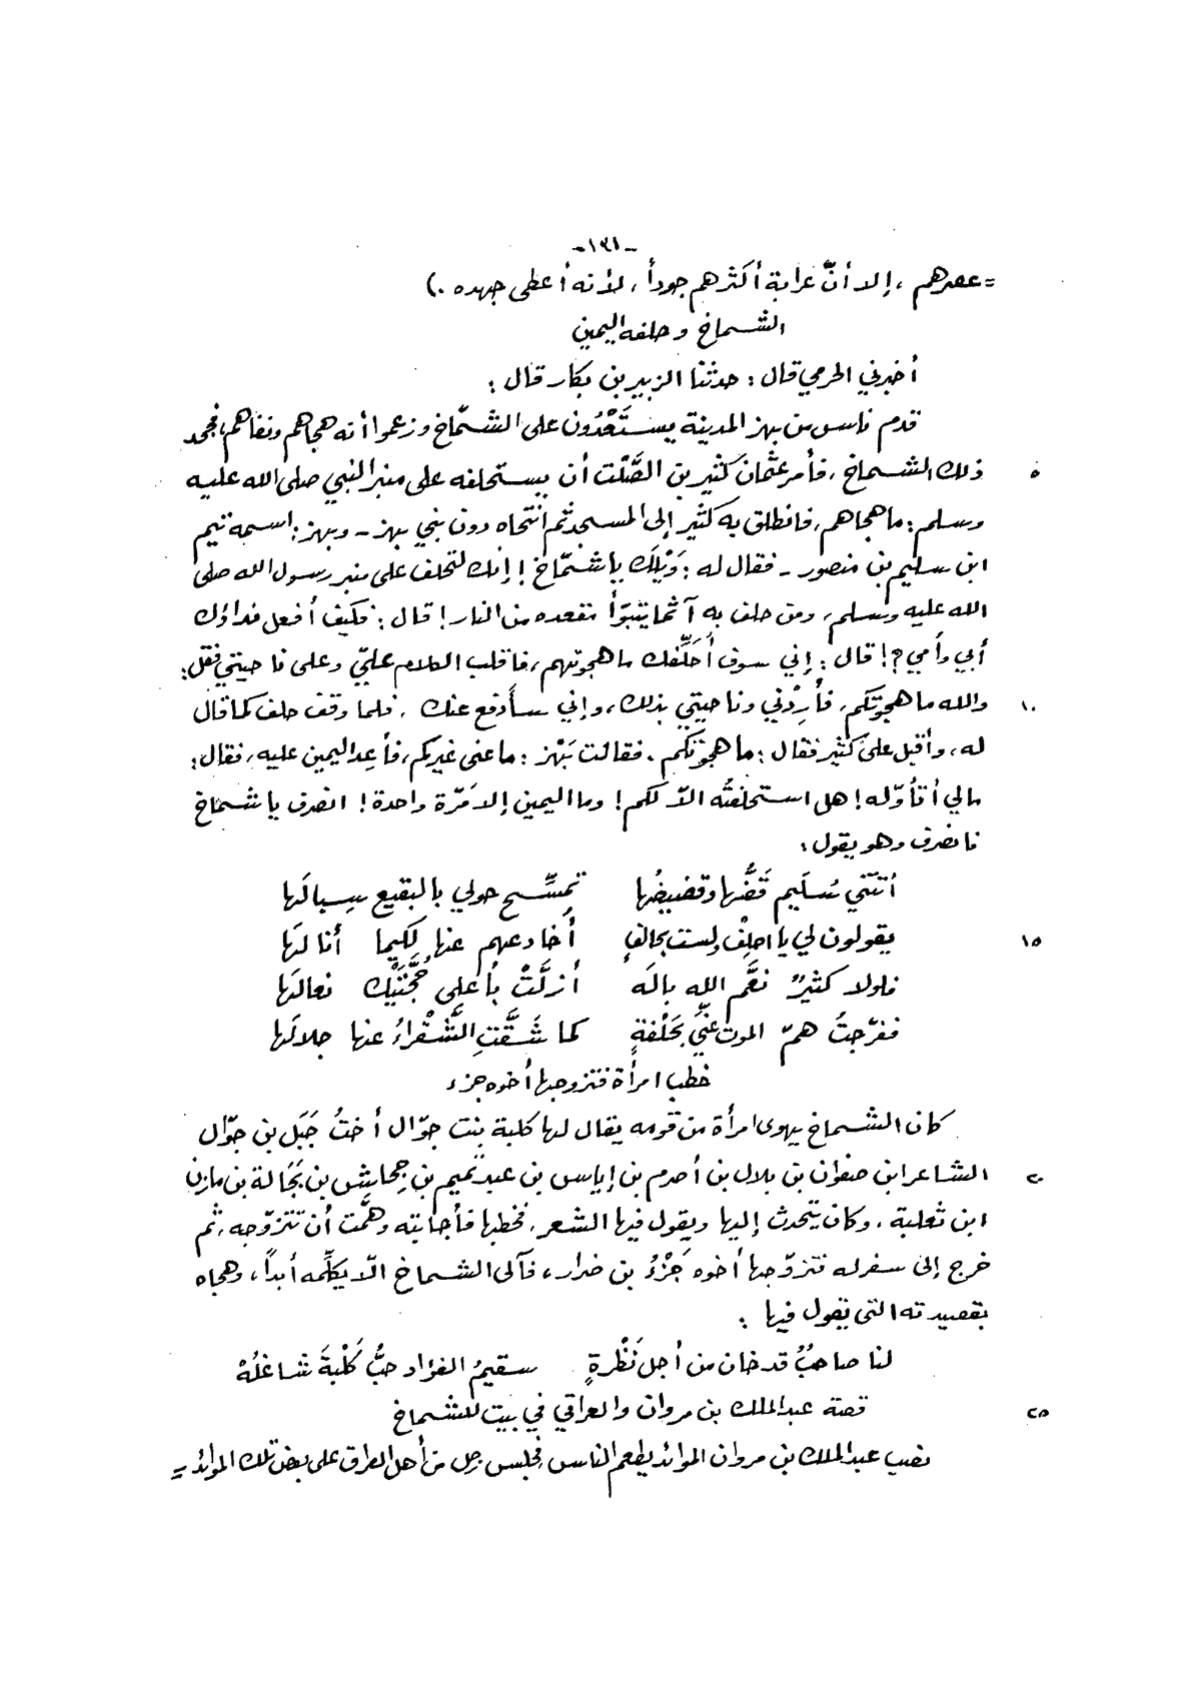 -١٣١-
= عصرهم ، إلا أنّ عرابة أكثرهم جوداً ، لأنه أعطى جهده .)
الشماخ وحلفه اليمين
أخبرني الحرمي قال : حدثنا الزبير بن بكار قال :
قدم ناس من بهز المدينة يستَعْدُون على الشمّاخ وزعموا أنه هجاهم ونفاهم، فجحد
٥ ذلك الشماخ ، فأمر عثمان كثير بن الصَّلْت أن يستحلفه على منبر النبي صلى الله عليه
وسلم : ما هجاهم ، فانطلق به كثير إلى المسجد ثم انتحاه دون بني بهز - وبهز : اسمه تيم
ابن سليم بن منصور - فقال له : وَيْلَك يا شمّاخ ! إنك لتحلف على منبر رسول الله صلى
الله عليه وسلم ، ومن حلف به آثما يتبوّأ مقعده من النار ! قال : فكيف أفعل فداؤك
أبي وأمي ؟! قال : إني سوف أُحَلِّفك ما هجوتهم ، فاقلب الكلام عليّ وعلى ناحيتي فقل :
١٠ والله ما هجوتكم ، فأَرِدْني وناحيتي بذلك ، وإني سأدفع عنك . فلما وقف حلف كما قال
له ، وأقبل على كثير فقال : ما هجوتكم . فقالت بَهْز : ما عنى غيركم ، فأعِد اليمين عليه ، فقال :
مالي أتأوّله ! هل استحلفتُه الاّ لكم ! وما اليمين إلا مَرّة واحدة ! انصرف يا شماخ
فانصرف وهو يقول :
أتتَني سُلَيم قَضُّها وقضيضُها تمسِّح حولي بالبقيع سِبالَها
١٥ يقولون لي يا احلِفْ ولست بحالفٍ أخادعهم عنها لكيما أنالَها
فلولا كثيرٌ نعَّم الله بالَه أزلَّتْ بأعلى حُجَّتَيْك نعالَها
ففرّجتُ همّ الموت عنّي بحَلْفةٍ كما شَقَّتِ الشَّقْراءُ عنها جلالَها
خطب امرأة فتزوجها أخوه جزء
كان الشماخ يهوى امرأة من قومه يقال لها كلبة بنت جوّال أختُ جَبَل بن جوّال
٢٠ الشاعر ابن صفوان بن بلال بن أصرم بن إياس بن عبد تميم بن جِحاش بن بَجَالة بن مازن
ابن ثعلبة ، وكان يتحدث إليها ويقول فيها الشعر ، فخطبها فأجابته وهمَّت أن تتزوّجه ، ثم
خرج إلى سفر له فتزوّجها أخوه جَزْءُ بن ضرار ، فآلى الشماخ الّا يكلِّمه أبداً ، وهجاه
بقصيدته التي يقول فيها :
لنا صاحبٌ قد خان من أجل نَظْرةٍ سقيمُ الفؤاد حبُّ كَلْبةَ شاغلُهْ
٢٥ قصة عبد الملك بن مروان والعراقي في بيت للشماخ
نصب عبد الملك بن مروان الموائد يطعم الناس فجلس رجل من أهل العراق على بعض تلك الموائد =